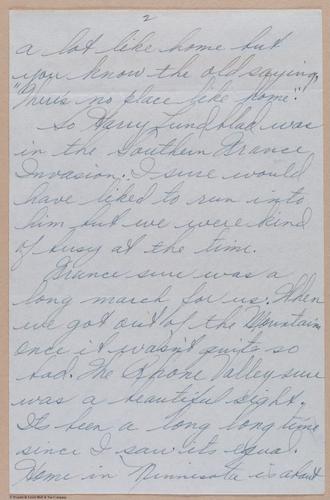 2
a lot like home but
you know the old saying,
"There's no place like home".
So Harry Lundblad was
in the Southern France
Invasion. I sure would
have liked to run into
him but we were kind
of busy at the time.
France sure was a
long march for us. When
we got out of the Mountains
once it wasn't quite so
bad. The Rhone Valley sure
was a beautiful sight.
Its been a long long time
since I saw its equal.
Home in Minnesota is about